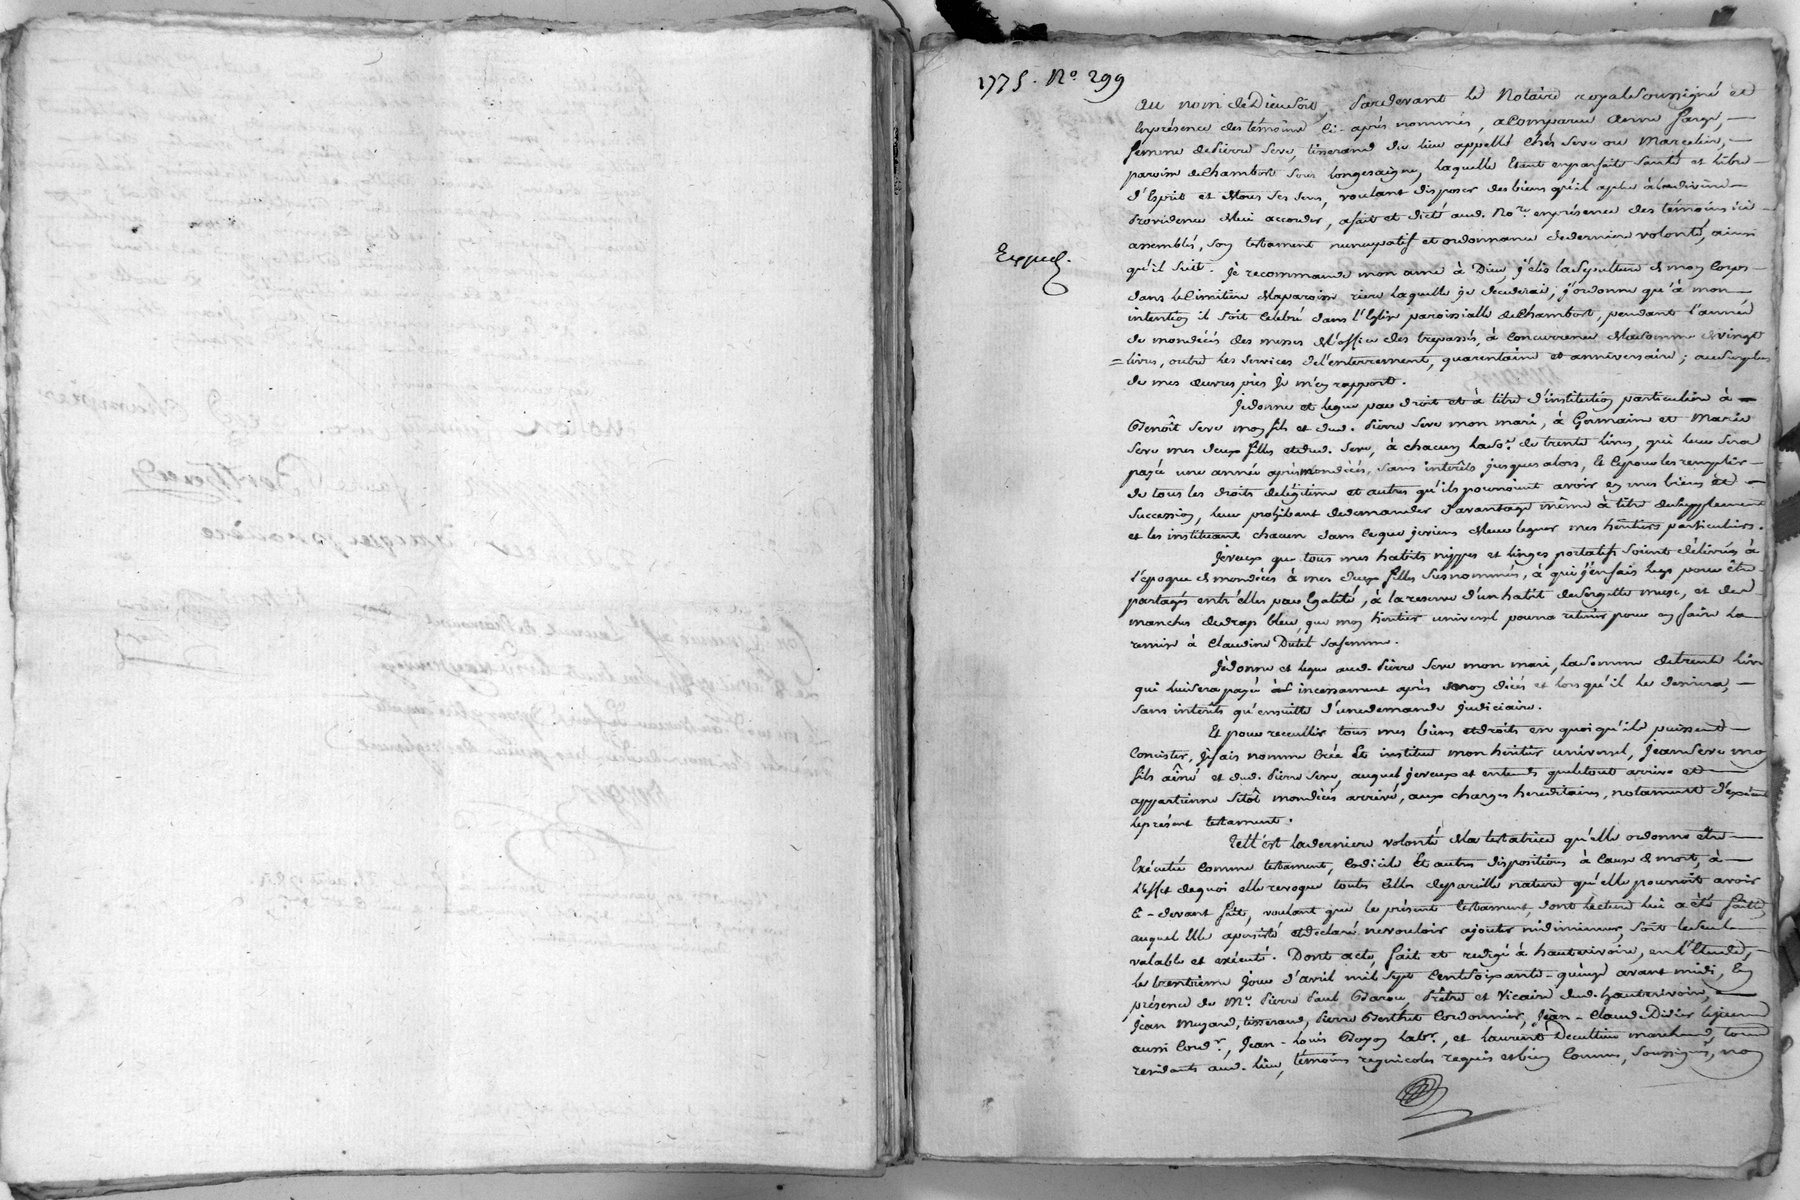 1775. No. 299
Au nom de Dieu soit, Pardevant le Notaire royal soussigné et
en présence des témoins ci-après nommés, a Comparue anne farge,
femme de Pierre Seve, tisserand du lieu appellé chés Seve ou Marcelin,
paroisse de Chambost sous Longesaigne, laquelle etant en parfaite santé et libre
d'Esprit et de tous ses sens, voulant disposer des biens qu'il a plu à la divine
Providence de lui accorder, a fait et dicté aud. No.re en présence des témoins ici
assemblés, son testament nuncupatif et ordonnance de derniere volonté, ainsi
Exped.
qu'il suit. Je recommande mon ame à Dieu, j'élis la sepulture de mon Corps
dans le Cimitière de la paroisse riere laquelle je décederai; j'ordonne qu'à mon
intention il soit celebré dans l'Eglise paroissialle de Chambost, pendant l'année
de mon décès des messes de l'office des trepassés, à concurrence de la somme de vingt
livres, outre les services de l'enterrement, quarantaine et anniversaire; au surplus
de mes œuvres pies je m'en rapport.
Je donne et legue par droit et à titre d'institution particulière à
Benoît Seve mon fils et dud. Pierre Seve mon mari, à Germaine et Marie
Seve mes deux filles et dud. Seve, à chacun la so.e de trente livres, qui leur sera
payée une année après mon décès, sans intérêts jusques alors, et ce pour les remplir
de tous les droits de légitime et autres qu'ils pourroient avoir en mes biens et
succession, leur prohibant de demander d'avantage même à titre de supplement
et les instituant chacun dans ce que je viens de leur leguer mes héritiers particuliers.
Je veux que tous mes habits nippes et linges portatifs soient délivrés à
l'époque de mon décès à mes deux filles susnommées, à qui j'en fais legs pour être
partagés entr'elles par Egalité, à la reserve d'un habit de sergette musc, et des
manches de drap bleu, que mon heritier universel pourra retenir pour en faire la
remise à Claudine Dutel sa femme.
Je donne et legue aud. Pierre Seve mon mari, la somme de trente livres
qui lui sera payée incessamment après mon décès et lorsqu'il le desirera,
sans intérêts qu'ensuitte d'une demande judiciaire.
Et pour recueillir tous mes biens et droits en quoi qu'ils puissent
consister, je fais nomme crée et institue mon heritier universel, Jean Seve mon
fils aîné et dud. Pierre Seve, auquel je veux et entends que le tout arrive et
appartienne sitôt mon décès arrivé, aux charges hereditaires, notamment d'exécuter
le présent testament.
Tell'est la derniere volonté de la testatrice qu'elle ordonne être
Exécutée comme testament, codicile et autres dispositions à cause de mort, à
l'effet de quoi elle revoque toutes celles de pareille nature qu'elle pourroit avoir
ci-devant fait, voulant que le présent testament, dont lecture lui a été faitte,
auquel elle a persisté et declaré ne vouloir ajouter ni diminuer, soit le seul
valable et exécuté. Dont acte, fait et redigé à hauterivoire, en l'Etude,
le trentieme jour d'avril mil sept cent soixante-quinze avant midi, En
présence de Mr. Pierre Paul Barou, Prêtre et Vicaire dud. hauterivoire,
Jean Muzard, tisserand, Pierre Berthet Cordonnier, Jean-Claude Didier lejeune
aussi cord.r, Jean-Louis Boyon lab.r, et Laurent Decultieu marchand, tous
residants aud. lieu, témoins regnicoles requis et bien connus, soussignés, non